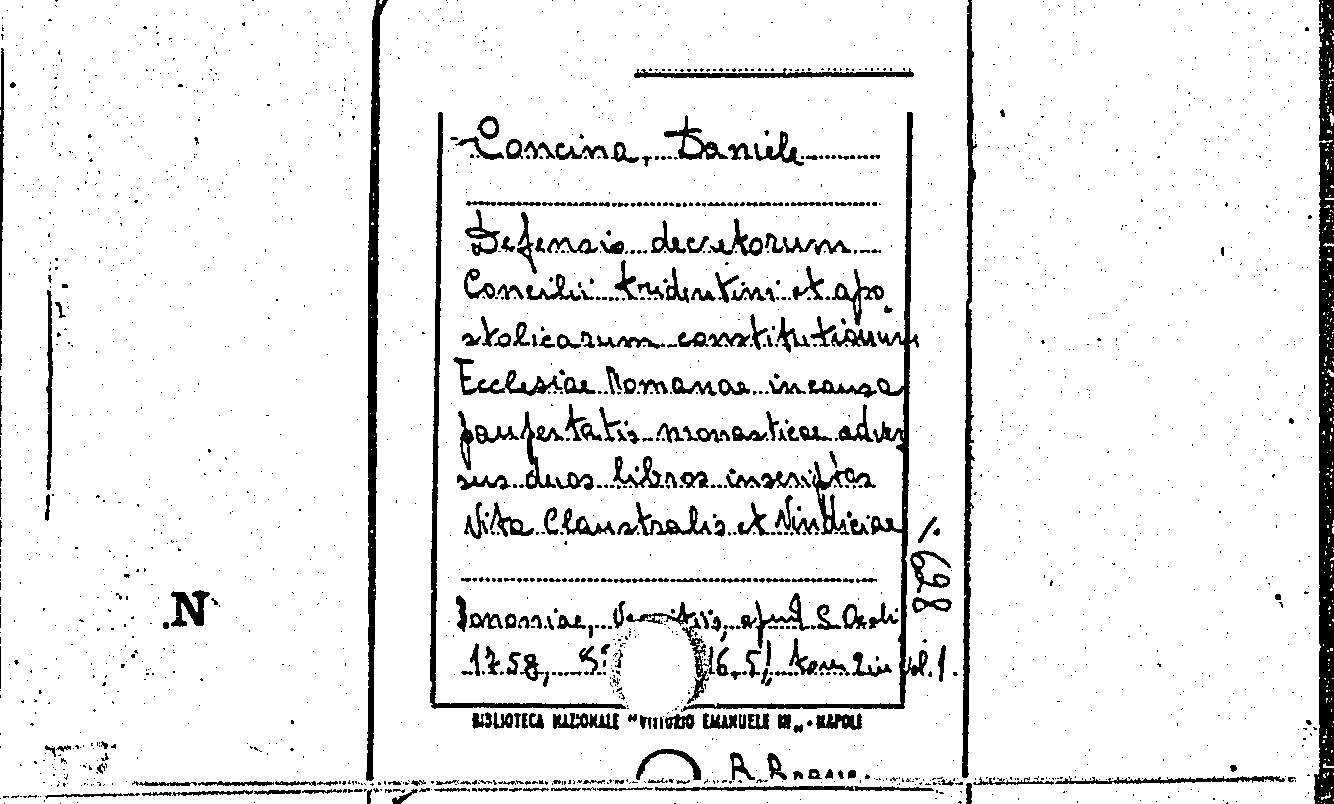 Concina, Daniele
Defensio decretorum
Concilii tridentini et apo
stolicarum constitutionum
Ecclesiae Romanae in causa
paupertatis monasticae adver
sus duos libros inscriptos
Vita Claustralis et Vindiciae
% 698
Bononiae, Venetiis, apud S. Occhi
1758, 8° 16.5, tom 2 in vol. 1.
BIBLIOTECA NAZIONALE "VITTORIO EMANUELE III„ - NAPOLI
.N